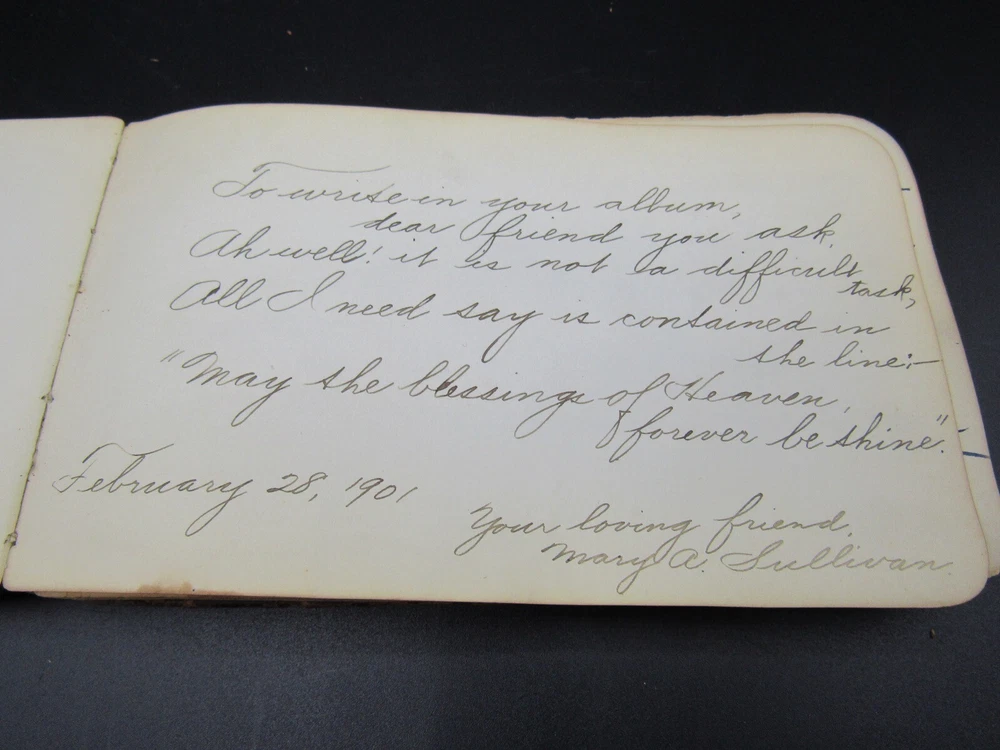 To write in your album,
dear friend you ask.
Ah well! it is not a difficult
task,
All I need say is contained in
the line:-
"May the blessings of Heaven,
forever be thine".
February 28, 1901
Your loving friend,
Mary A. Sullivan.